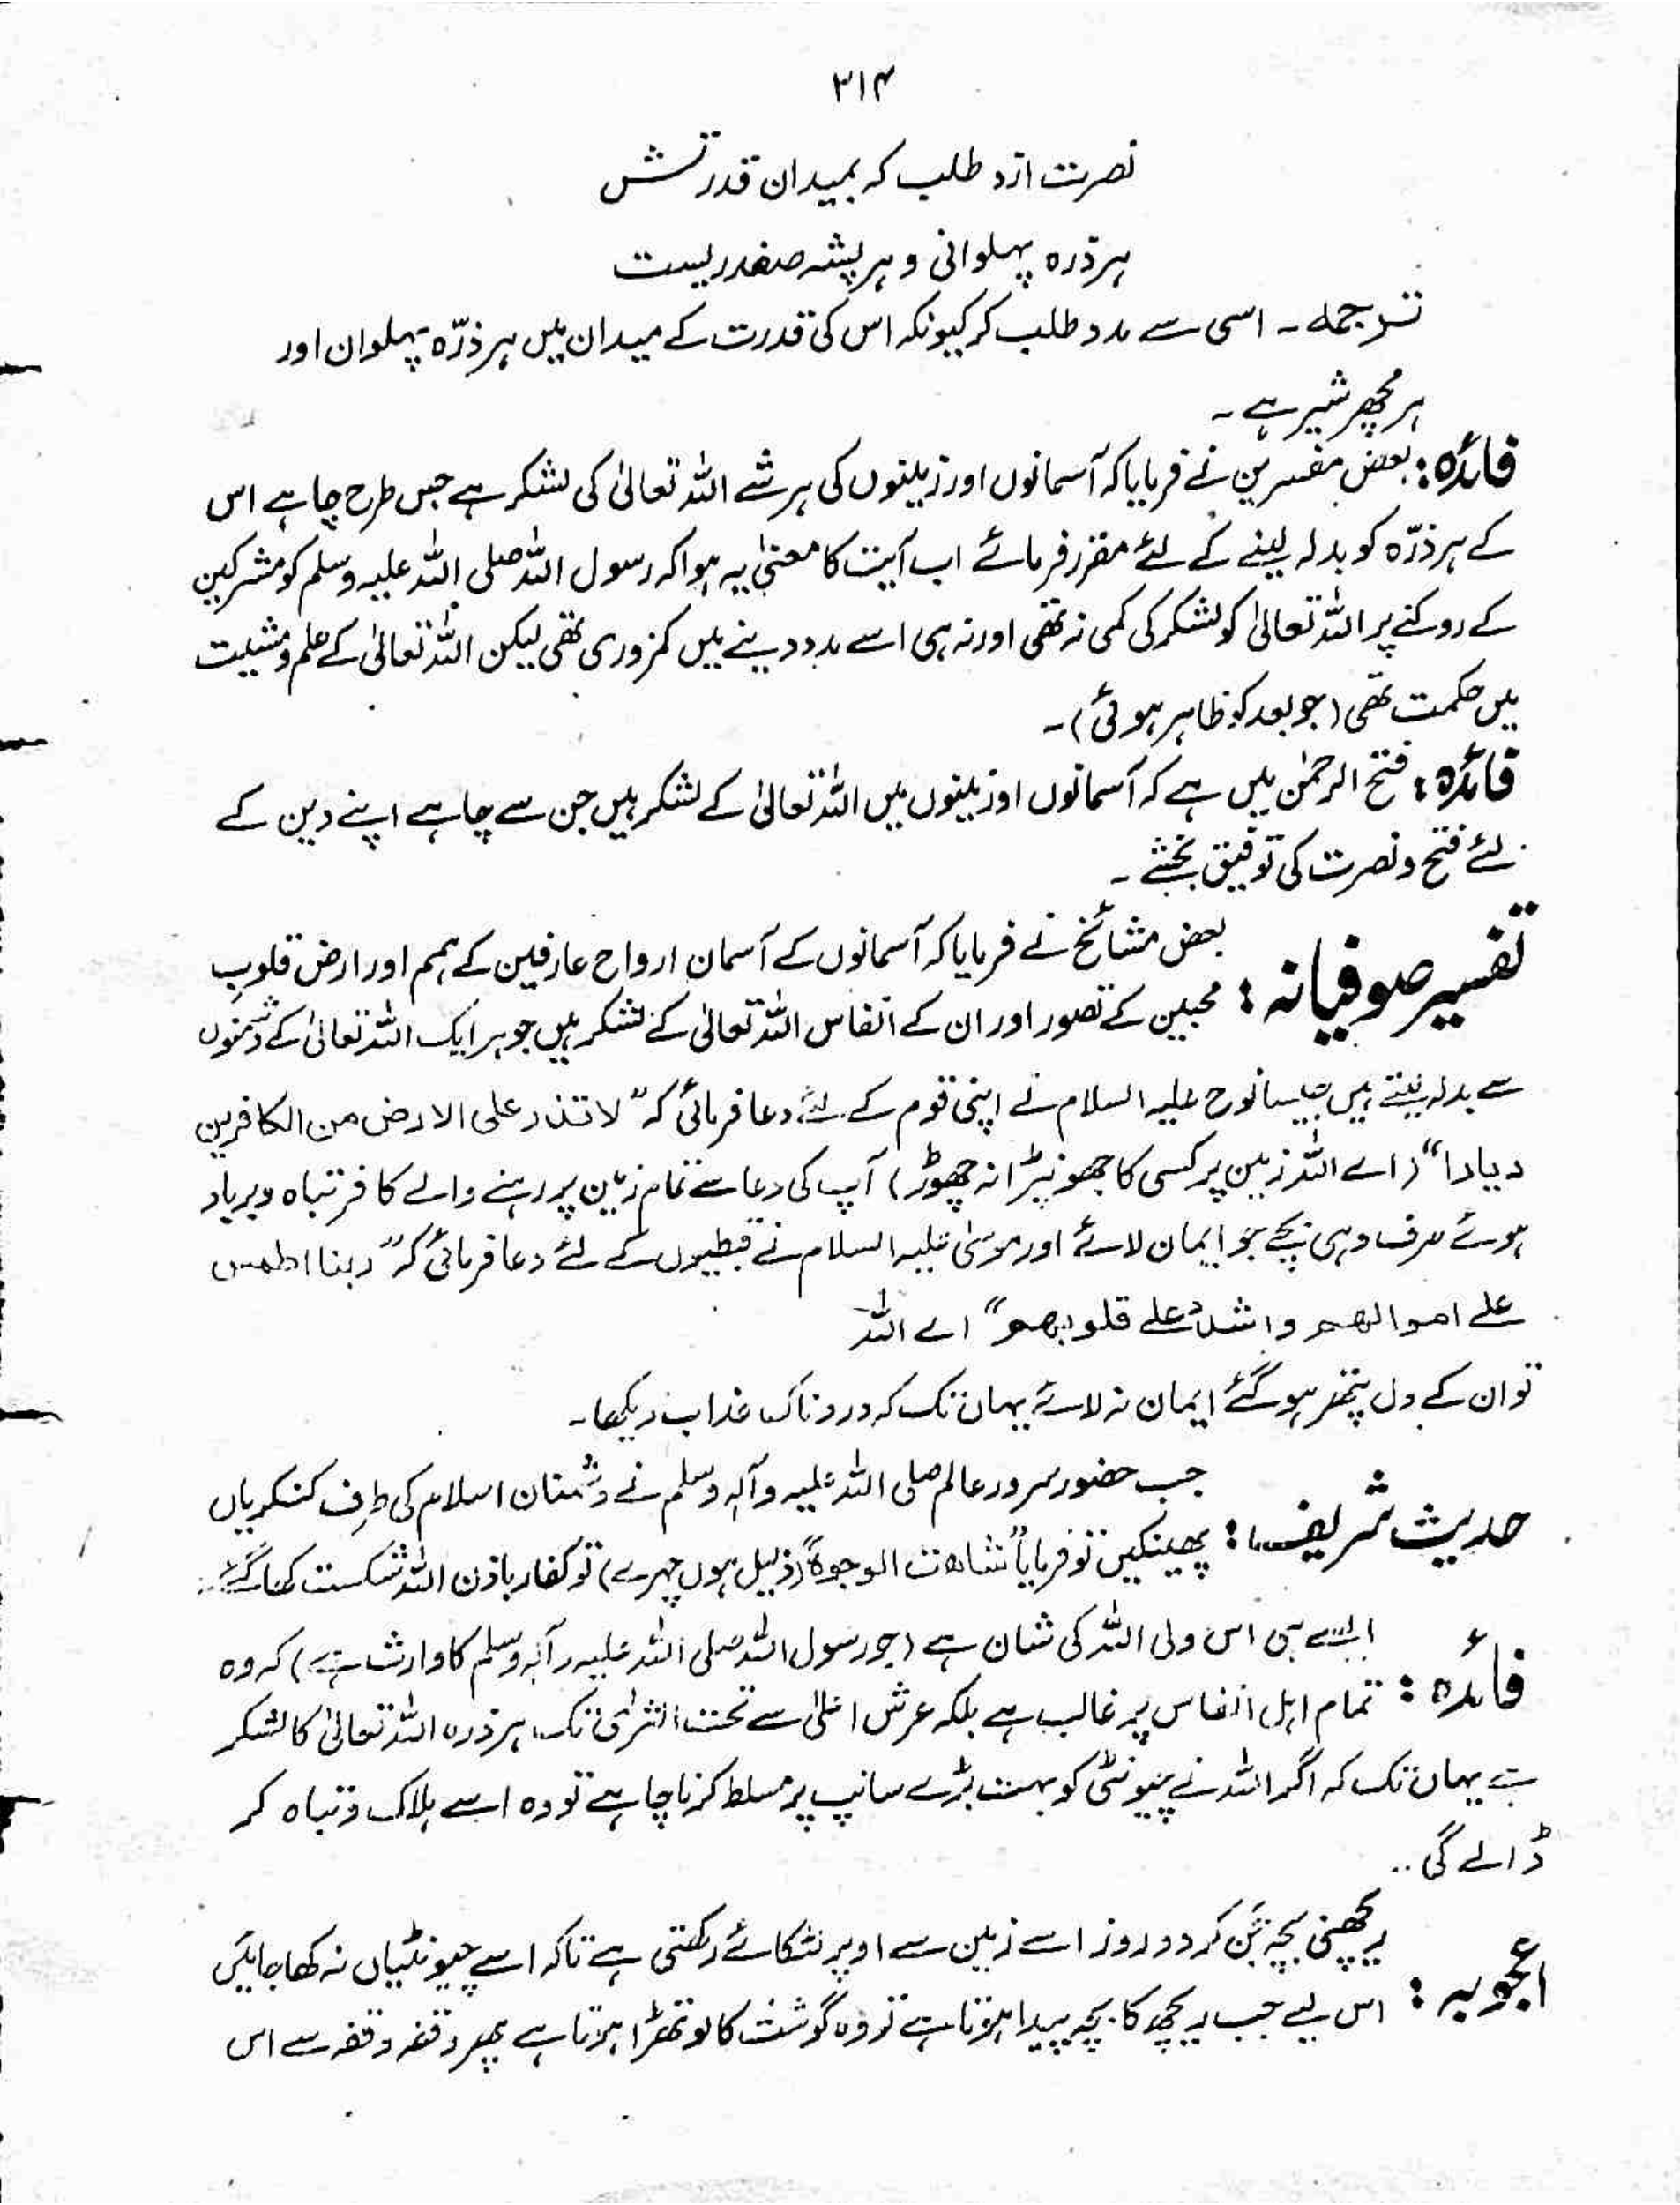 ۳۱۴
نصرت ازو طلب کہ بمیدان قدرتش
ہر ذرہ پہلوانی و ہر پشہ صفدریست
ترجمہ ۔ اسی سے مدد طلب کر کیونکہ اس کی قدرت کے میدان میں ہر ذرّہ پہلوان اور
ہر مچھر شیر ہے ۔
فائدہ : بعض مفسرین نے فرمایا کہ آسمانوں اور زمینوں کی ہر شے اللہ تعالیٰ کی لشکر ہے جس طرح چاہے اس
کے ہر ذرّہ کو بدلہ لینے کے لئے مقرر فرمائے اب آیت کا معنیٰ یہ ہوا کہ رسول اللہ صلی اللہ علیہ وسلم کو مشرکین
کے روکنے پر اللہ تعالیٰ کو لشکر کی کمی نہ تھی اور نہ ہی اسے مدد دینے میں کمزوری تھی لیکن اللہ تعالیٰ کے علم و مشیت
میں حکمت تھی (جو بعد کو ظاہر ہوئی)۔
فائدہ : فتح الرحمٰن میں ہے کہ آسمانوں اور زمینوں میں اللہ تعالیٰ کے لشکر ہیں جن سے چاہے اپنے دین کے
لئے فتح و نصرت کی توفیق بخشے ۔
تفسیر صوفیانہ : بعض مشائخ نے فرمایا کہ آسمانوں کے آسمان ارواح عارفین کے ہمم اور ارض قلوبِ
محبین کے تصور اور ان کے انفاس اللہ تعالیٰ کے لشکر ہیں جو ہر ایک اللہ تعالیٰ کے دشمنوں
سے بدلہ لیتے ہیں جیسا نوح علیہ السلام نے اپنی قوم کے لئے دعا فرمائی کہ ”لا تذر علی الارض من الکافرین
دیارا“ (اے اللہ زمین پر کسی کا جھونپڑا نہ چھوڑ) آپ کی دعا سے تمام زمین پر رہنے والے کافر تباہ و برباد
ہوئے صرف وہی بچے جو ایمان لائے اور موسیٰ علیہ السلام نے قبطیوں کے لئے دعا فرمائی کہ ”ربنا اطمس
علے اموالھم واشدد علے قلوبھم“ اے اللہ
تو ان کے دل پتھر ہو گئے ایمان نہ لائے یہاں تک کہ دردناک عذاب دیکھا۔
حدیث شریف : جب حضور سرور عالم صلی اللہ علیہ وآلہ وسلم نے دشمنان اسلام کی طرف کنکریاں
پھینکیں تو فرمایا ”شاھت الوجوہ“ (ذلیل ہوں چہرے) تو کفار باذن اللہ شکست کھا گئے۔
فائدہ : ایسے ہی اس ولی اللہ کی شان ہے (جو رسول اللہ صلی اللہ علیہ وآلہ وسلم کا وارث ہے) کہ وہ
تمام اہل انفاس پر غالب ہے بلکہ عرش اعلیٰ سے تحت الثریٰ تک ہر ذرہ اللہ تعالیٰ کا لشکر
ہے یہاں تک کہ اگر اللہ نے چیونٹی کو بہت بڑے سانپ پر مسلط کرنا چاہے تو وہ اسے ہلاک و تباہ کر
ڈالے گی ..
اعجوبہ : ریچھنی بچہ جَن کر دو روز اسے زمین سے اوپر لٹکائے رکھتی ہے تاکہ اسے چیونٹیاں نہ کھا جائیں
اس لیے جب ریچھ کا بچہ پیدا ہوتا ہے تو وہ گوشت کا لوتھڑا ہوتا ہے پھر وقفہ وقفہ سے اس